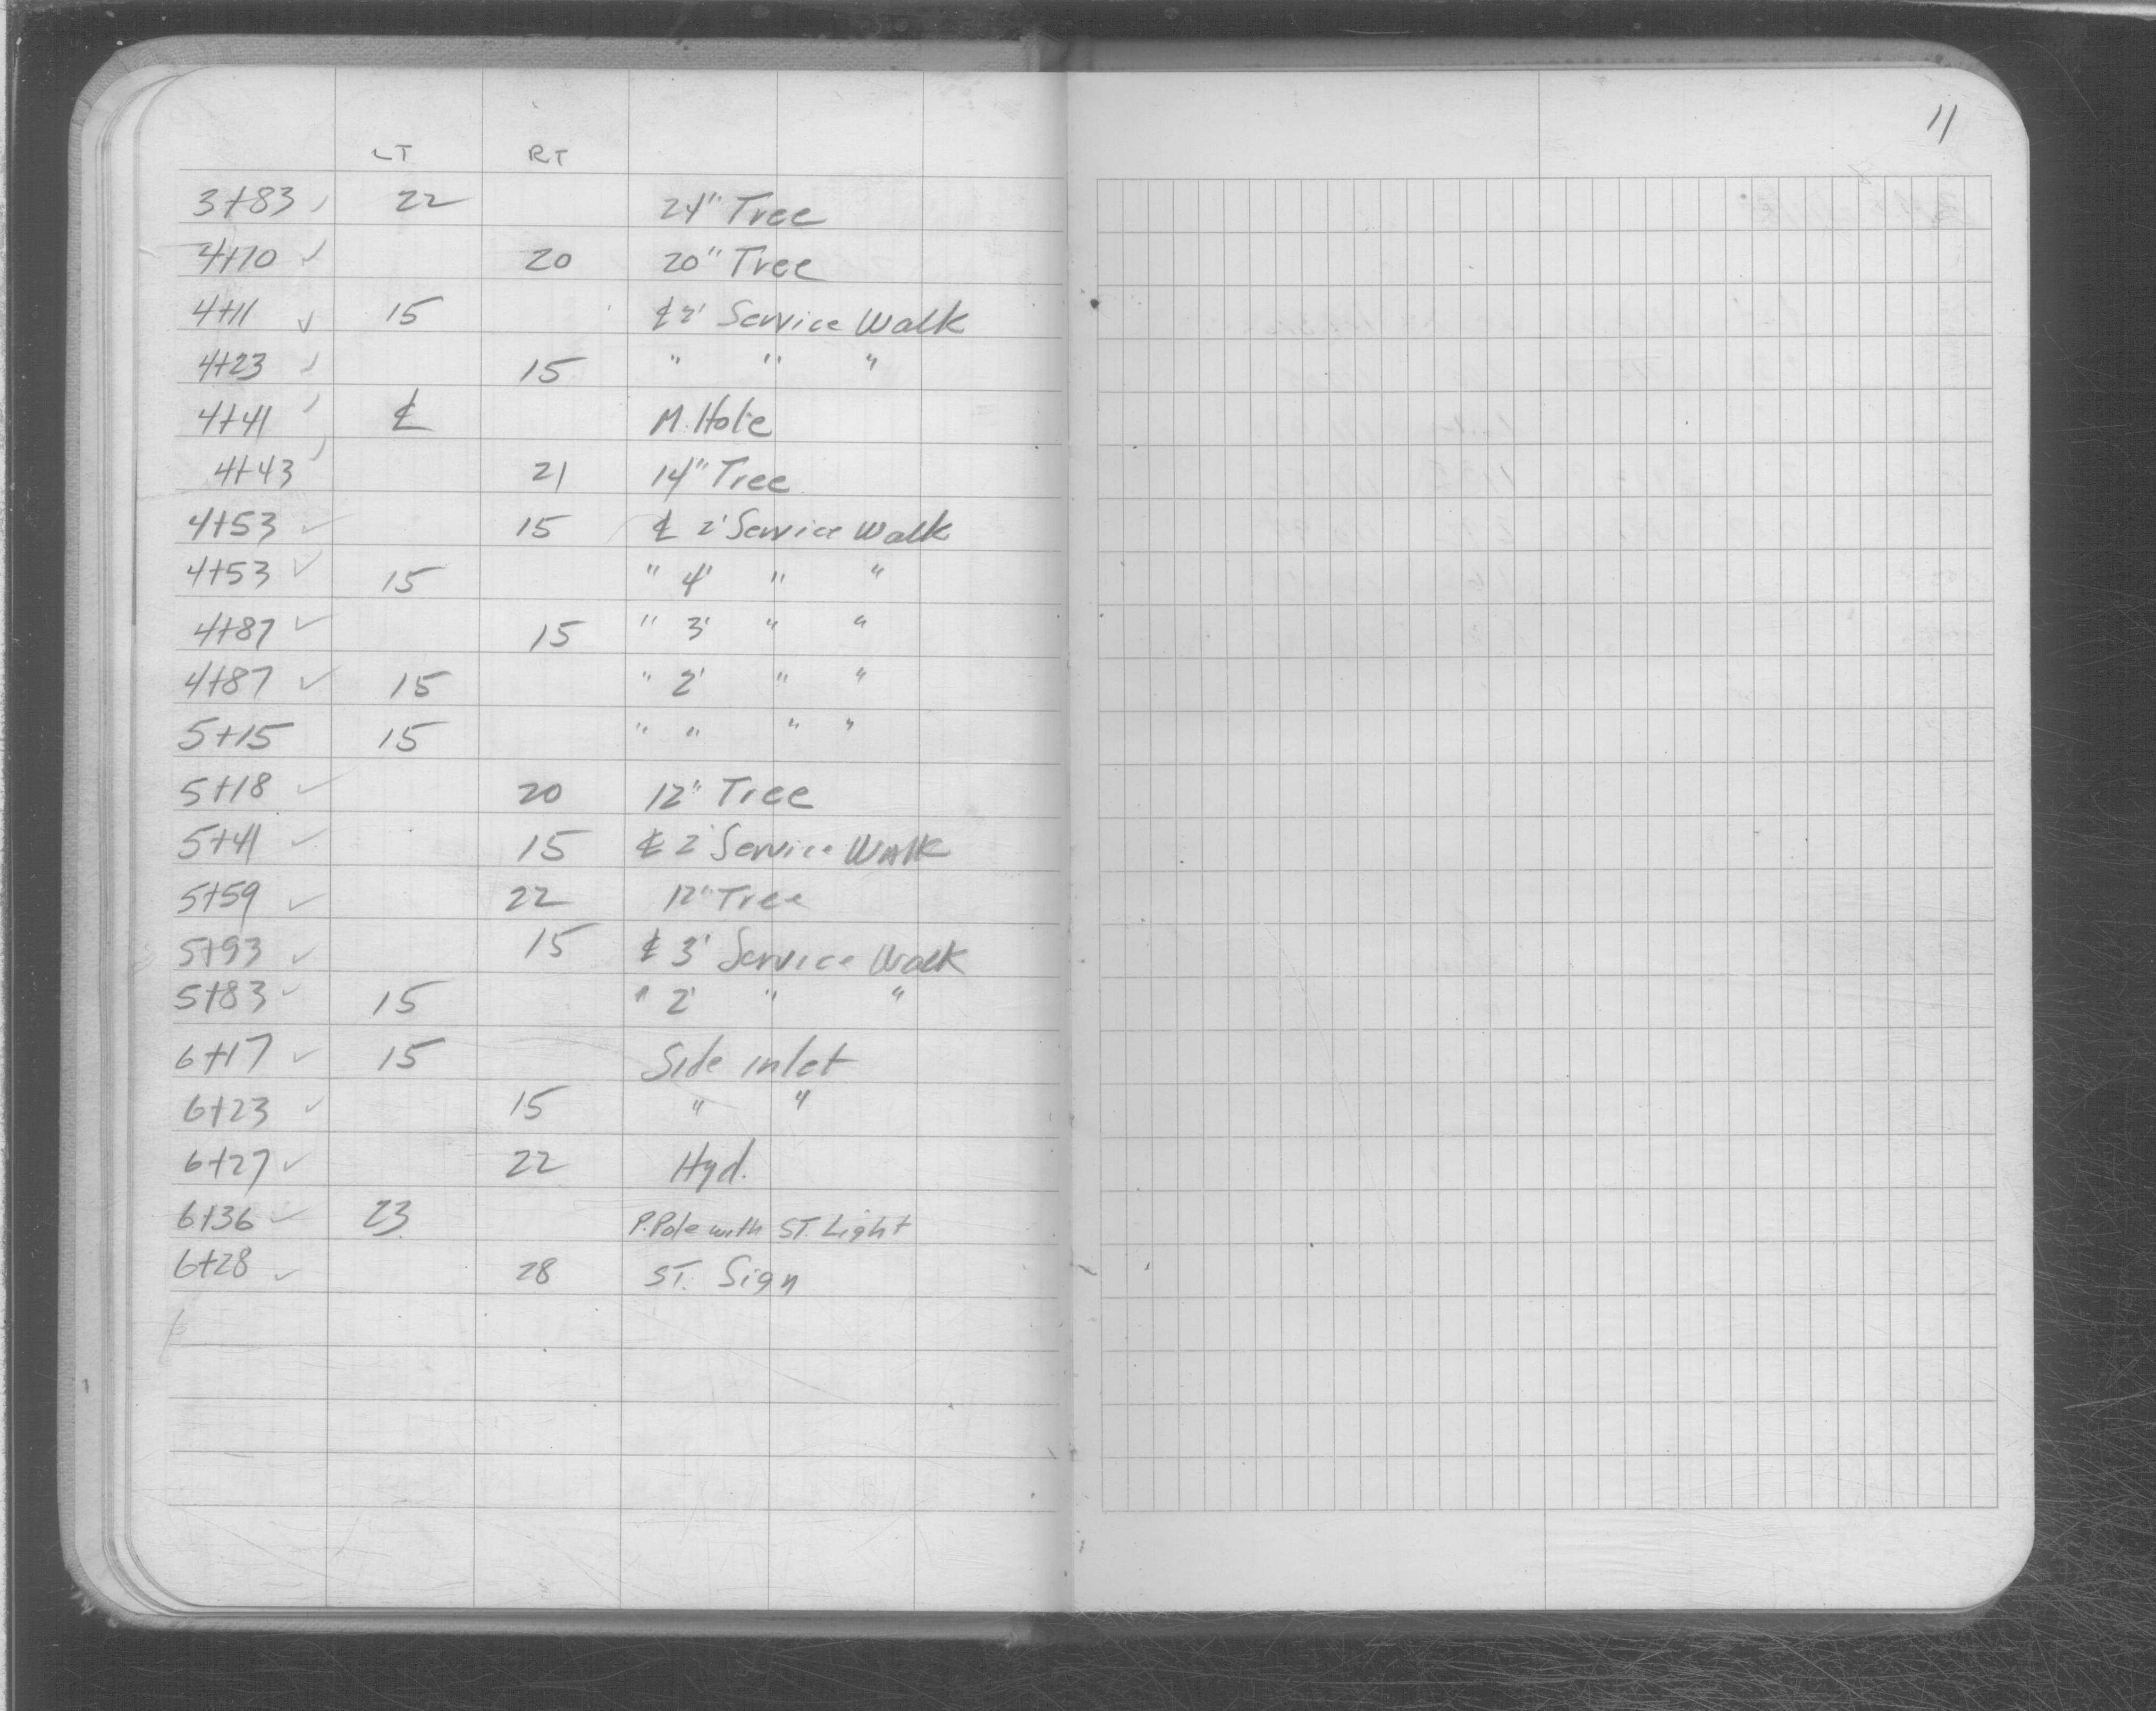 11
LT RT
3+83 ✓ 22 24" Tree
4+10 ✓ 20 20" Tree
4+11 ✓ 15 ℄ 2' Service Walk
4+23 ✓ 15 " " "
4+41 ✓ ℄ M. Hole
4+43 ✓ 21 14" Tree
4+53 ✓ 15 ℄ 2' Service Walk
4+53 ✓ 15 " 4' " "
4+87 ✓ 15 " 3' " "
4+87 ✓ 15 " 2' " "
5+15 15 " " " "
5+18 ✓ 20 12" Tree
5+41 ✓ 15 ℄ 2' Service Walk
5+59 ✓ 22 12" Tree
5+93 ✓ 15 ℄ 3' Service Walk
5+83 ✓ 15 " 2' " "
6+17 ✓ 15 Side inlet
6+23 ✓ 15 " "
6+27 ✓ 22 Hyd.
6+36 ✓ 23 P.Pole with ST. Light
6+28 ✓ 28 ST. Sign